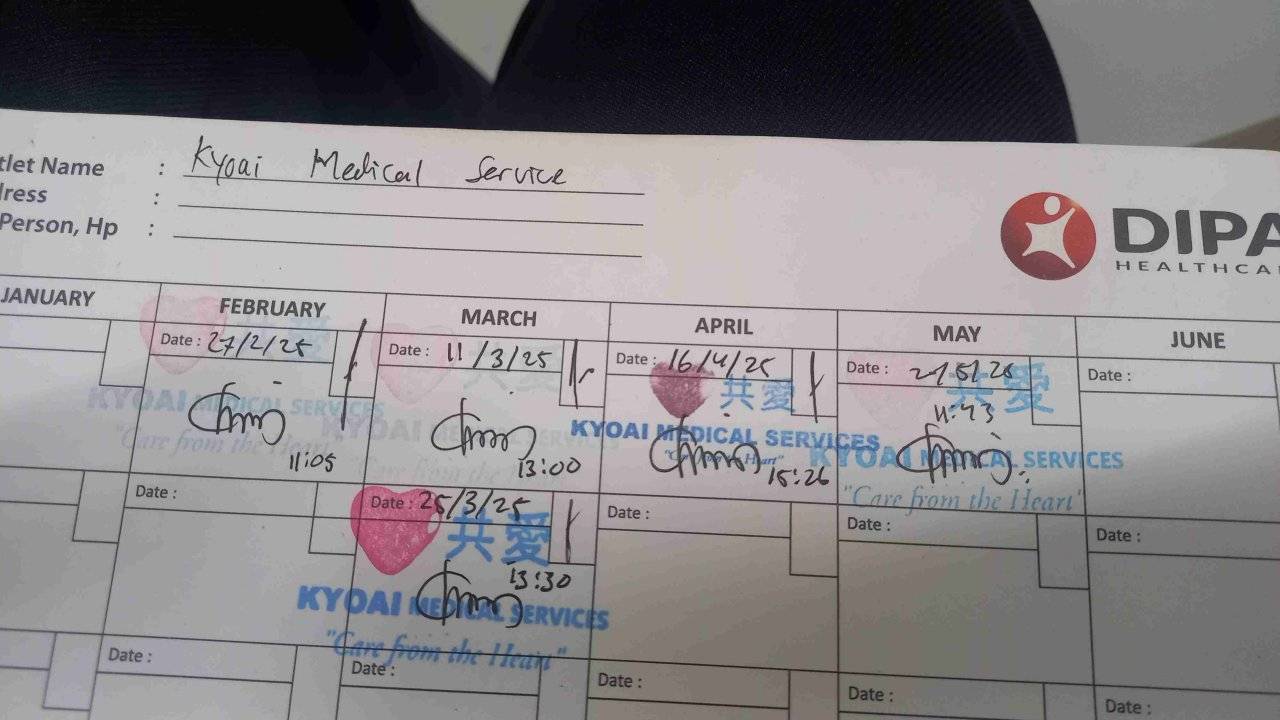 tlet Name : Kyoai Medical Service
dress :
Person, Hp :
DIPA
HEALTHCA
JANUARY FEBRUARY MARCH APRIL MAY JUNE
Date : 27/2/25
Date : 11/3/25
Date : 16/4/25
Date :
Date :
共愛
共愛
共愛
共愛
KYOAI MEDICAL SERVICES
"Care from the Heart"
11:05
KYOAI MEDICAL SERVICES
"Care from the Heart"
13:00
KYOAI MEDICAL SERVICES
"Care from the Heart"
15:26
KYOAI MEDICAL SERVICES
"Care from the Heart"
Date :
Date : 25/3/25
Date :
Date :
Date :
共愛
13:30
KYOAI MEDICAL SERVICES
"Care from the Heart"
Date :
Date :
Date :
Date :
Date :